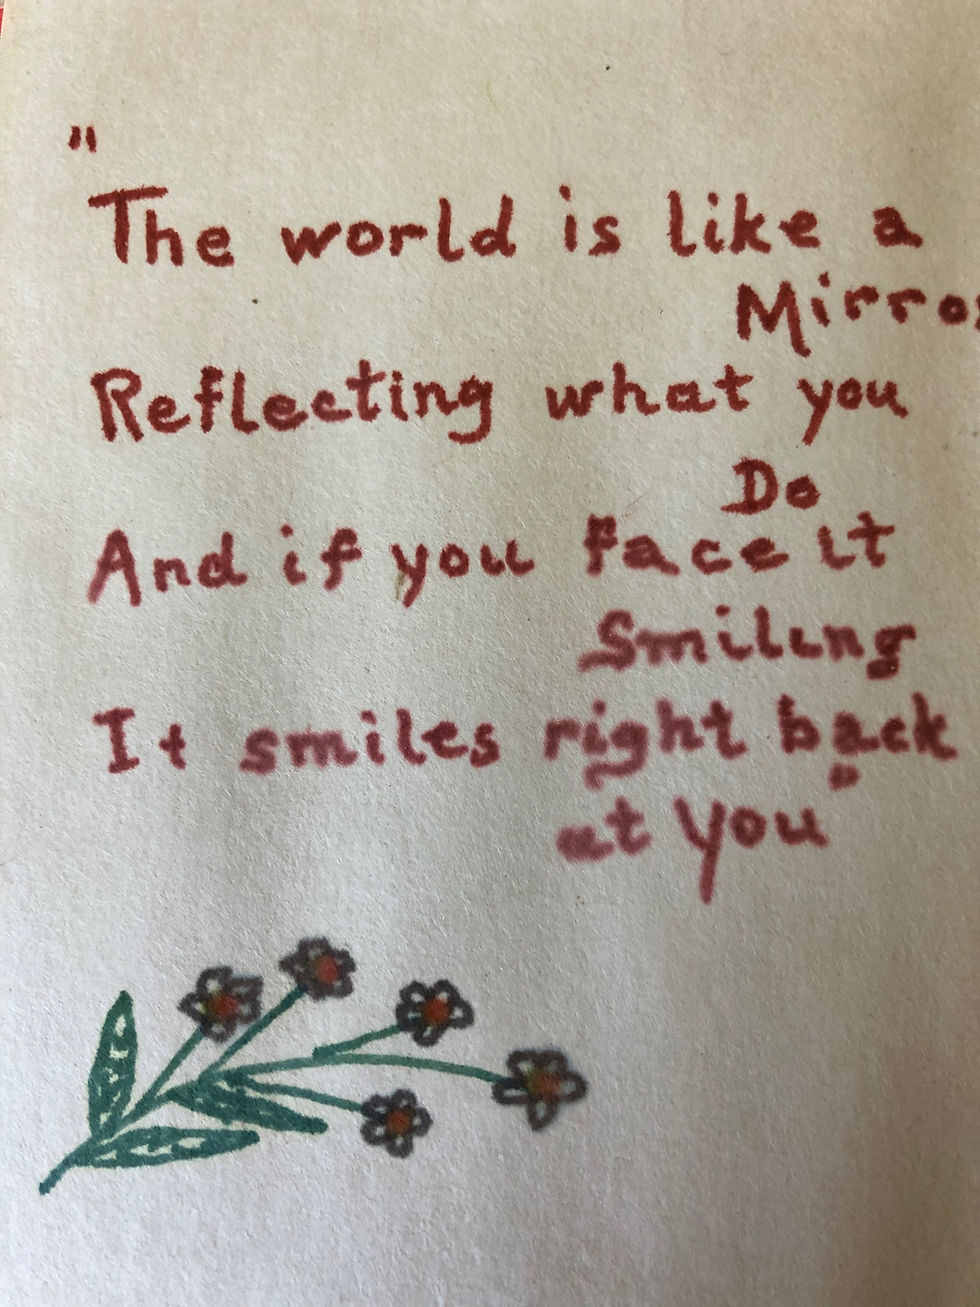 "
The world is like a
Mirror
Reflecting what you
Do
And if you face it
Smiling
It smiles right back
at you"